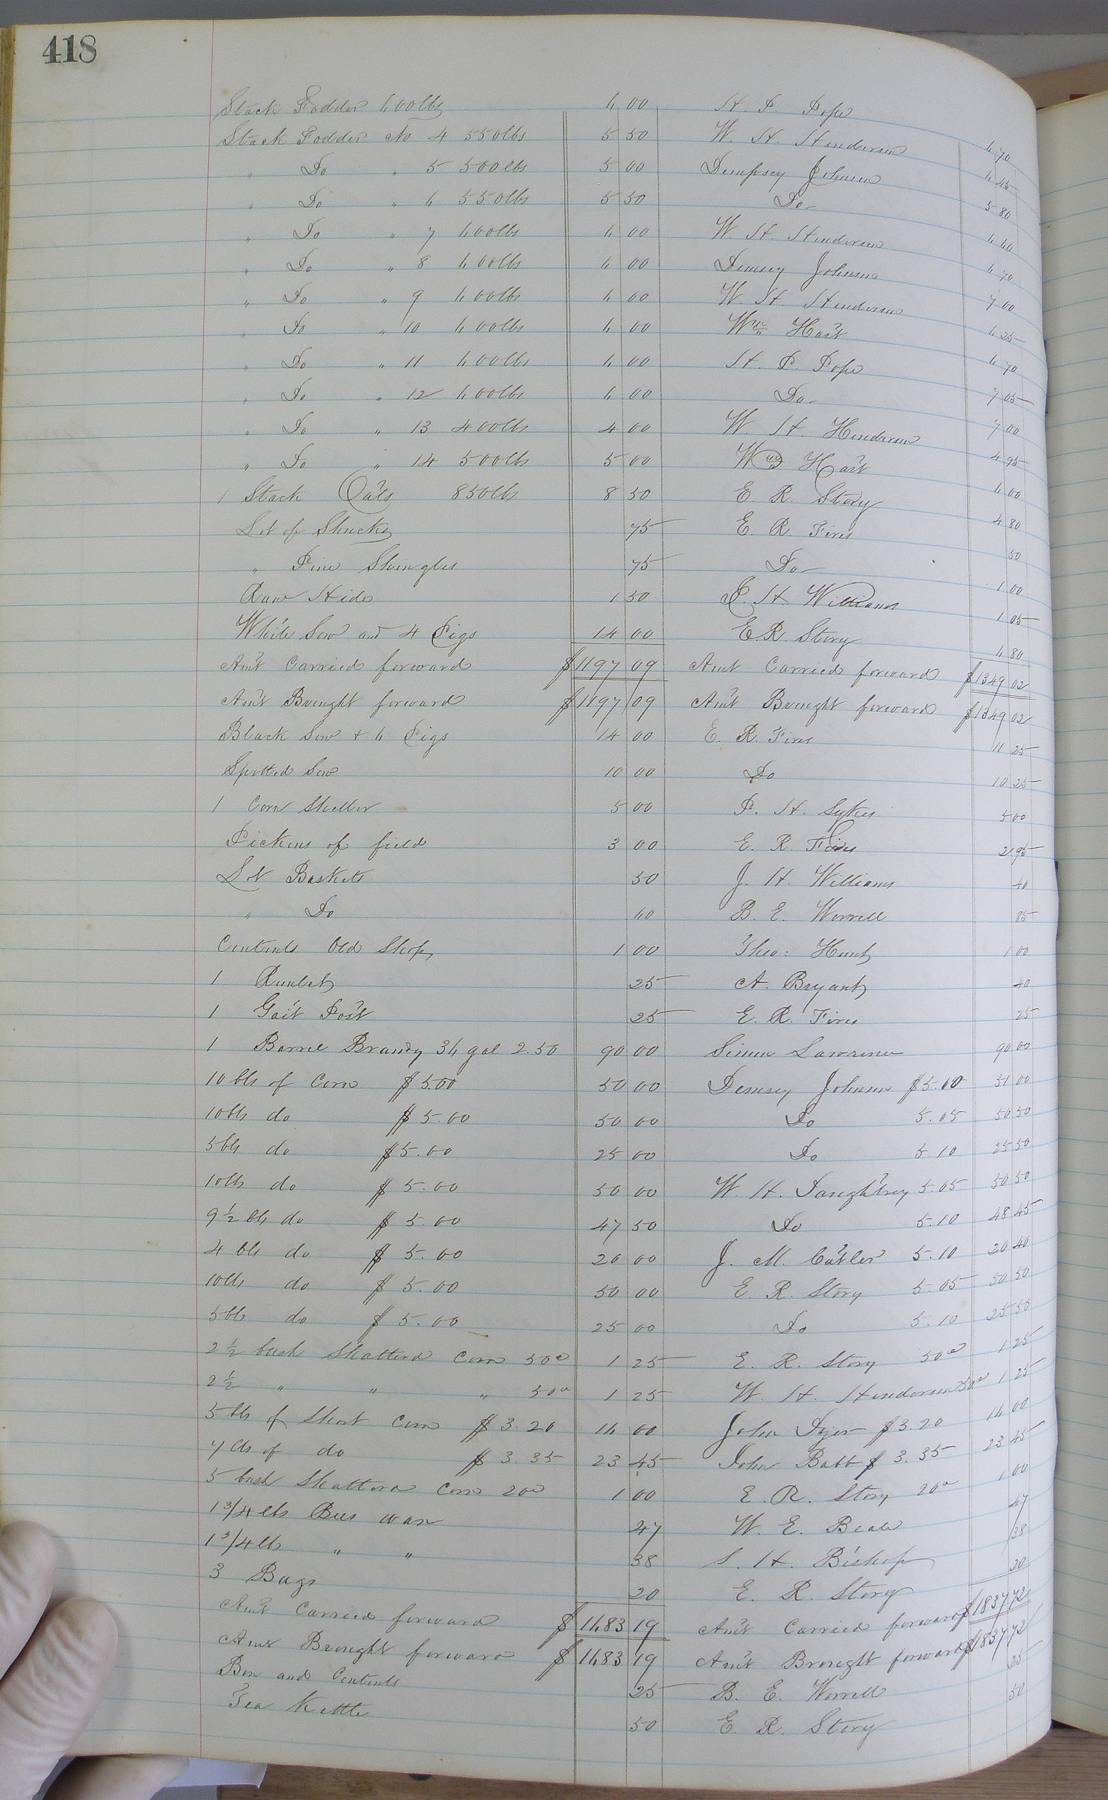 418
Stack Fodder 600lbs 6 00 H. P. Pope 6 70
Stack Fodder No 4 550lbs 5 50 W. H. Henderson 6 45
" Do " 5 500lbs 5 00 Dempsey Johnson 5 80
" Do " 6 550lbs 5 50 Do 6 60
" Do " 7 600lbs 6 00 W. H. Henderson 6 70
" Do " 8 600lbs 6 00 Demsey Johnson 7 00
" Do " 9 600lbs 6 00 W H Henderson 6 25
" Do " 10 600lbs 6 00 Wm Hart 6 70
" Do " 11 600lbs 6 00 H. P. Pope 7 05
" Do " 12 600lbs 6 00 Do 7 00
" Do " 13 400lbs 4 00 W H Henderson 4 95
" Do " 14 500lbs 5 00 Wm Hart 6 00
1 Stack Oats 850lbs 8 50 E R. Story 4 80
Lot of Shucks 75 E. R. Fires 50
" Pine Shingles 75 Do 1 00
Raw Hide 1 50 P. H Williams 1 05
White Sow and 4 Pigs 14 00 E.R. Story 6 80
Am't Carried forward $1197 09 Amt Carried forward $1349 02
Am't Brought forward $1197 09 Am't Brought forward $1349 02
Black Sow & 6 Pigs 14 00 E. R. Fires 11 25
Spotted Sow 10 00 Do 10 25
1 Corn Sheller 5 00 P. H. Sykes 5 00
Pickins of field 3 00 E. R. Fires 2 95
Lot Baskets 50 J. H. Williams 40
" Do 60 B. E. Worrell 85
Contents Old Shop 1 00 Theo: Hunt 1 00
1 Runlet 25 A. Bryant 40
1 Gait Post 25 E. R. Fires 25
1 Barrel Brandy 36 gal 2.50 90 00 Simon Lawrence 90 00
10 bls of Corn $5.00 50 00 Demsey Johnson $5.10 51 00
10bls do $5.00 50 00 Do 5.05 50 50
5bls do $5.00 25 00 Do 5.10 25 50
10bls do $5.00 50 00 W. H. Daughtrey 5.05 50 50
9 1/2 bls do $5.00 47 50 Do 5.10 48 45
4 bls do $5.00 20 00 J. M. Cutler 5.10 20 40
10bls do $5.00 50 00 E R. Story 5.05 50 50
5bls do $5.00 25 00 Do 5.10 25 50
2 1/2 bush Shattered Corn 50c 1 25 E. R. Story 50c 1 25
2 1/2 " " " 50c 1 25 W. H. Henderson 50c 1 25
5 bls of Short Corn $3.20 16 00 John $3.20 16 00
7 bls of do $3.35 23 45 John Babb $3.35 23 45
5 bush Shattered Corn 20c 1 00 E. R. Story 20c 1 00
1 3/4 lbs Bees wax 47 W. E. Beale 47
1 3/4 lbs " " 38 S. H. Bishop 38
3 Bags 20 E. R. Story 20
Am't Carried forward $1683 19 Am't Carried forward $1837 72
Amt Brought forward $1683 19 Am't Brought forward $1837 72
Box and Contents 25 B. E. Worrell 25
Tea Kettle 50 E. R. Story 50